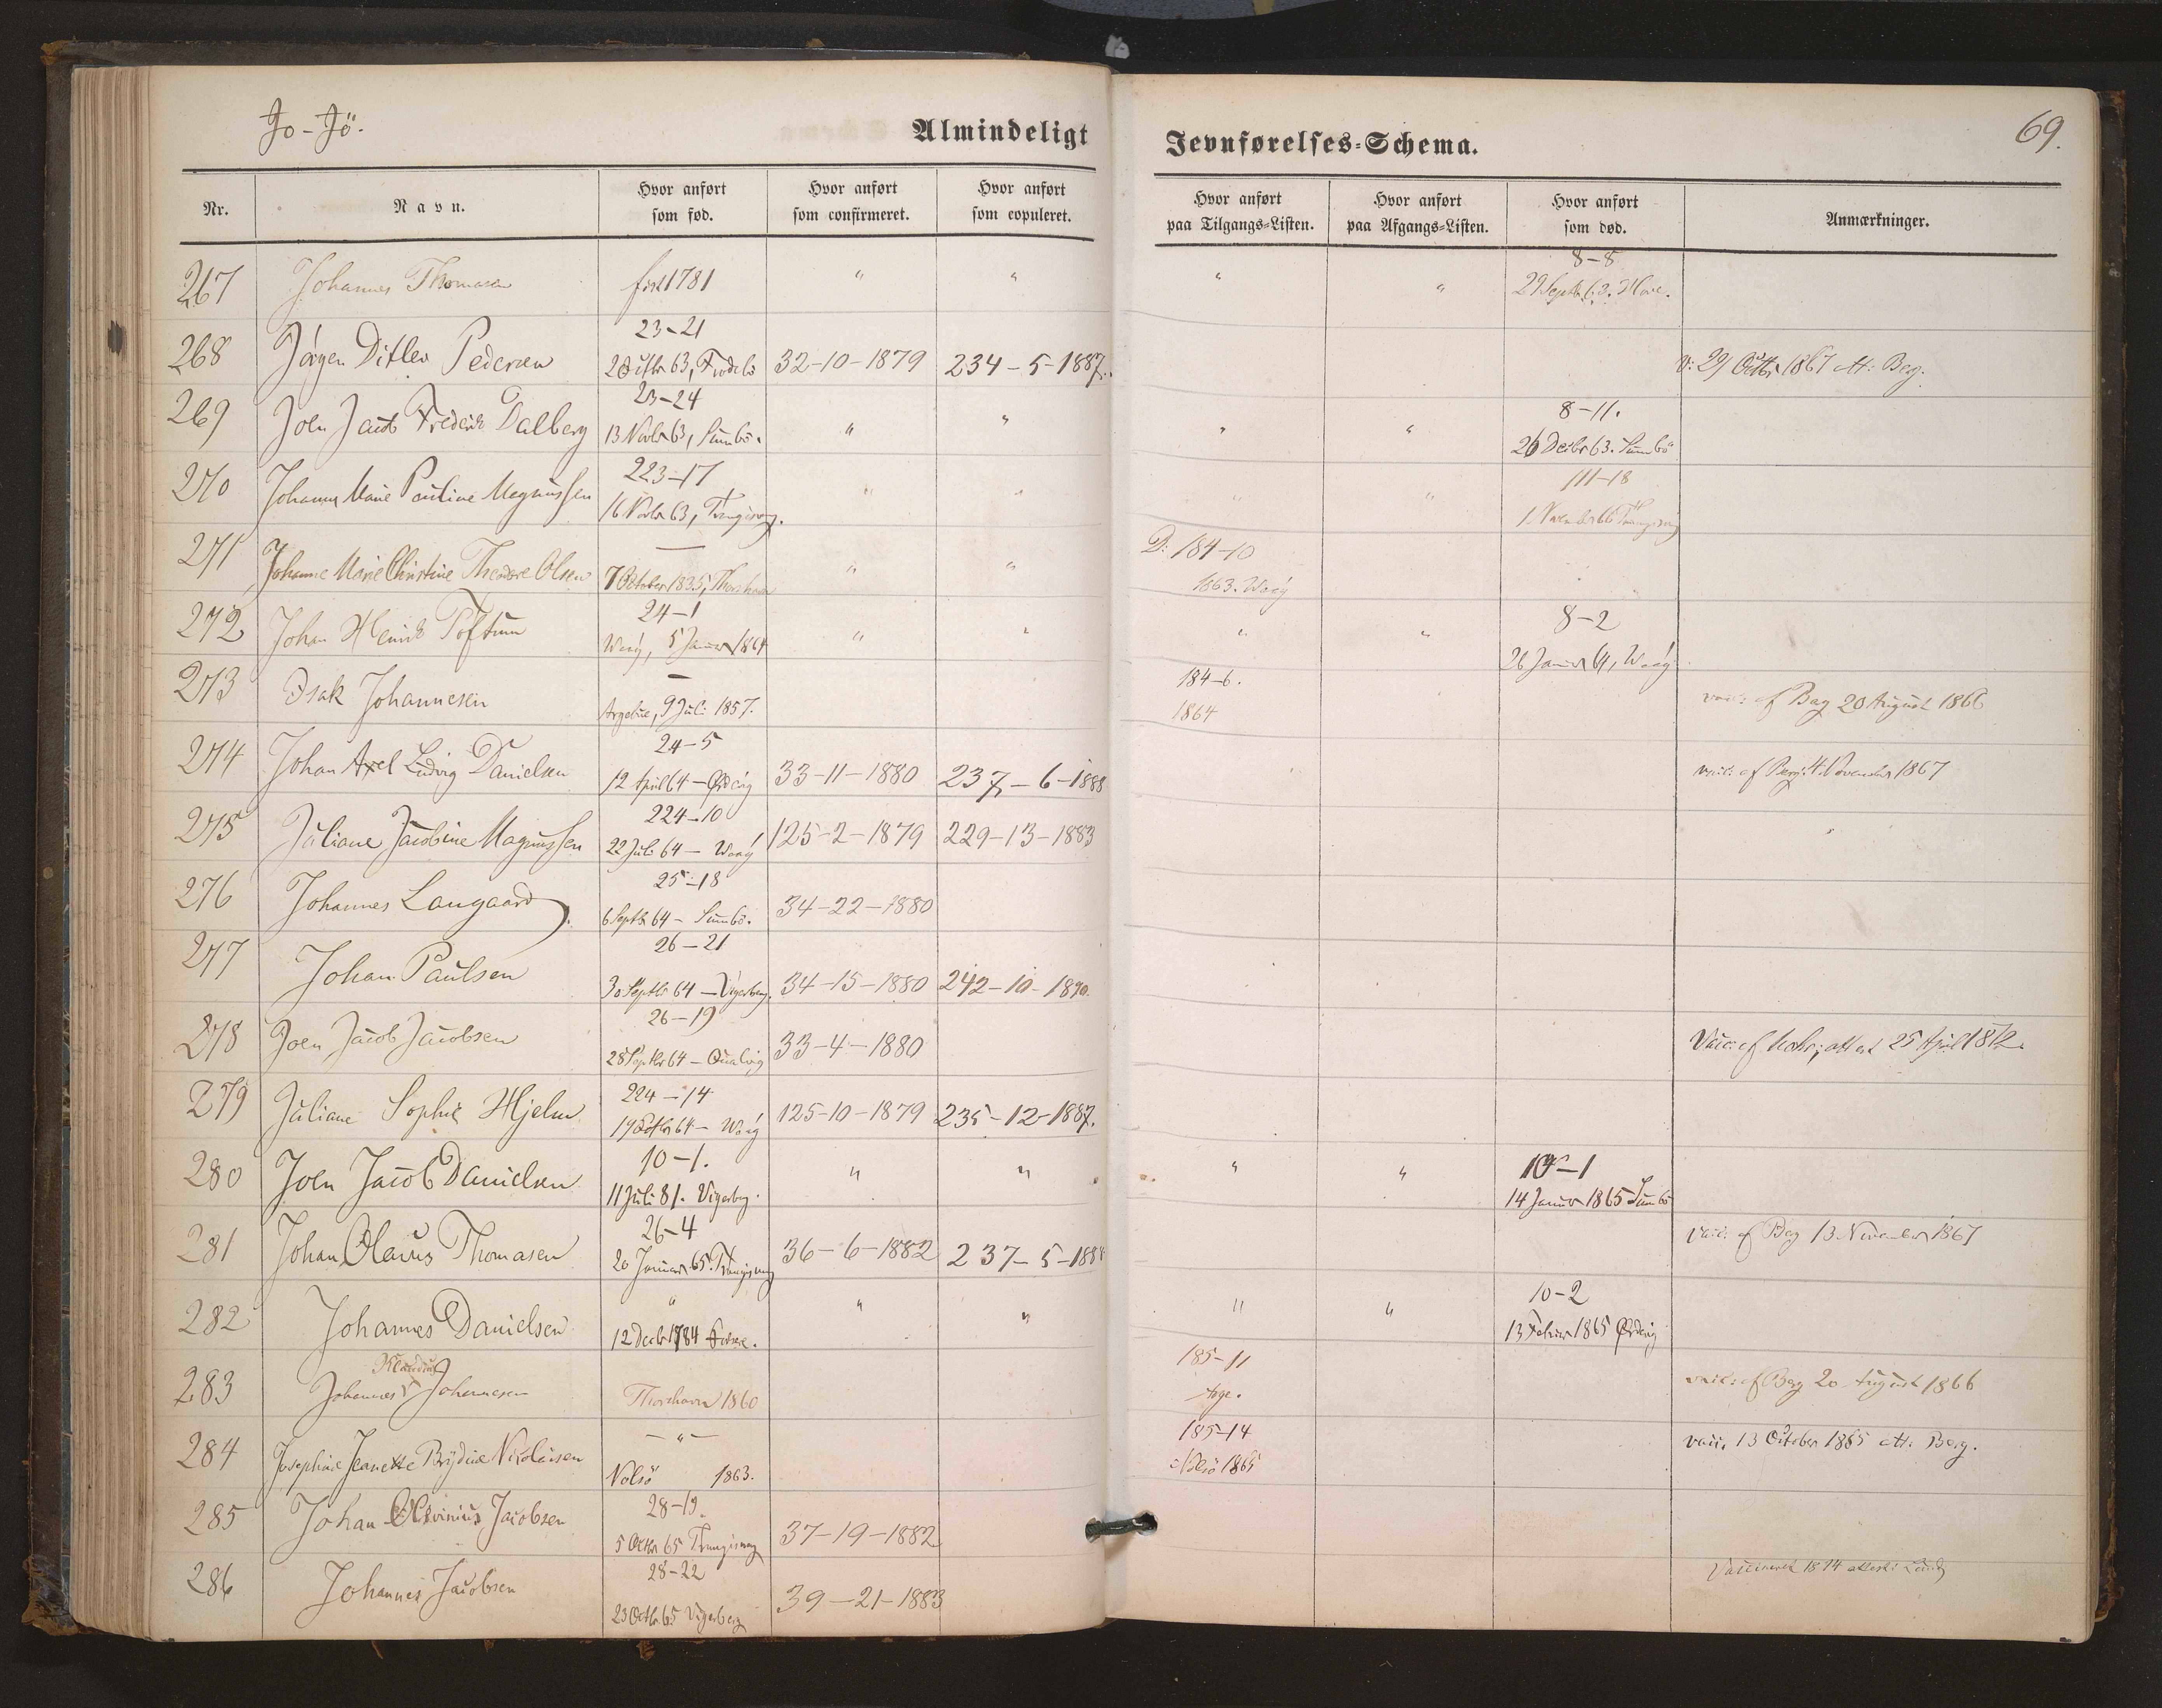 Jo-Jö.
Almindeligt Jevnførelses-Schema.
69.
Nr.
Navn.
Hvor anført som fød.
Hvor anført som confirmeret.
Hvor anført som copuleret.
Hvor anført paa Tilgangs-Listen.
Hvor anført paa Afgangs-Listen.
Hvor anført som død.
Anmærkninger.
267 Johannes Thomasen 1781 " " " " 8-8
29 Septbr 63.
23-21
268 Jörgen Ditlev Pedersen 63, Frodebö 32-10-1879 234-5-1887. v: 29 Octbr 1867 att: Berg.
23-24 8-11.
269 Joen Jacob Frederik Dalberg 13 Novbr 63, Sumbö. " " " " 26 Decbr 63. Sumbö
223-17 111-18
270 Johanne Marie Pauline Magnussen 16 Novbr 63, Trangisvaag. " " " " 1 November 66 Trangisvaag
— D: 184-10
271 Johanne Marie Christine Theodore Olsen 7 October 1835, Thorshavn " " 1863. Waag
24-1 8-2
272 Johan Henrik Toftum Waag, 5 Januar 1864 " " " " 26 Januar 64, Waag
— 184-6.
273 Isak Johannesen 9 Juli 1857. 1864 vacc: af Berg 20 August 1866
24-5
274 Johan Axel Ludvig Danielsen 12 April 64 - Ördevig 33-11-1880 237-6-1888 vacc: af Berg. 4 November 1867
224-10
275 Juliane Jacobine Magnussen 22 Juli 64 - Waag 125-2-1879 229-13-1883
25-18
276 Johannes Langaard. 6 Septbr 64 - Sumbö. 34-22-1880
26-21
277 Johan Paulsen 30 Septbr 64 - Vigerberg. 34-15-1880 242-10-1890.
26-19
278 Joen Jacob Jacobsen 28 Septbr 64 - Qualvig 33-4-1880 Vacc: af attest 25 April 1872.
224-14
279 Juliane Sophie Hjelm 19 Octbr 64 - Waag 125-10-1879 235-12-1887.
10-1. 10-1
280 Joen Jacob Danielsen 11 Juli 81. Vigerberg. " " " " 14 Januar 1865 Sumbö
26-4
281 Johan Olavus Thomasen 20 Januar 65. Trangisvaag 36-6-1882 237-5-1888 vacc: af Berg 13 November 1867
" 10-2
282 Johannes Danielsen 12 Decbr 1784 " " " " 13 Februar 1865 Ördevig
Klaudius 185-11
283 Johannes Johannesen Thorshavn 1860 vacc: af Berg 20 August 1866
— " — 185-14
284 Josephine Jeanette Brÿdine Nikolaisen Nolsö 1863. Nolsö 1865 vacc. 13 October 1865 att: Berg.
28-19.
285 Johan Jacobsen 5 Octbr 65 Trangisvaag 37-19-1882
28-22
286 Johannes Jacobsen 23 Octbr 65 Vigerberg 39-21-1883 Vaccineret 1874